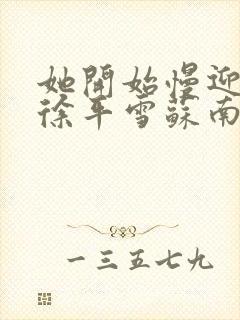 她開始慢迎
徐平雪蘇南
一三五七九